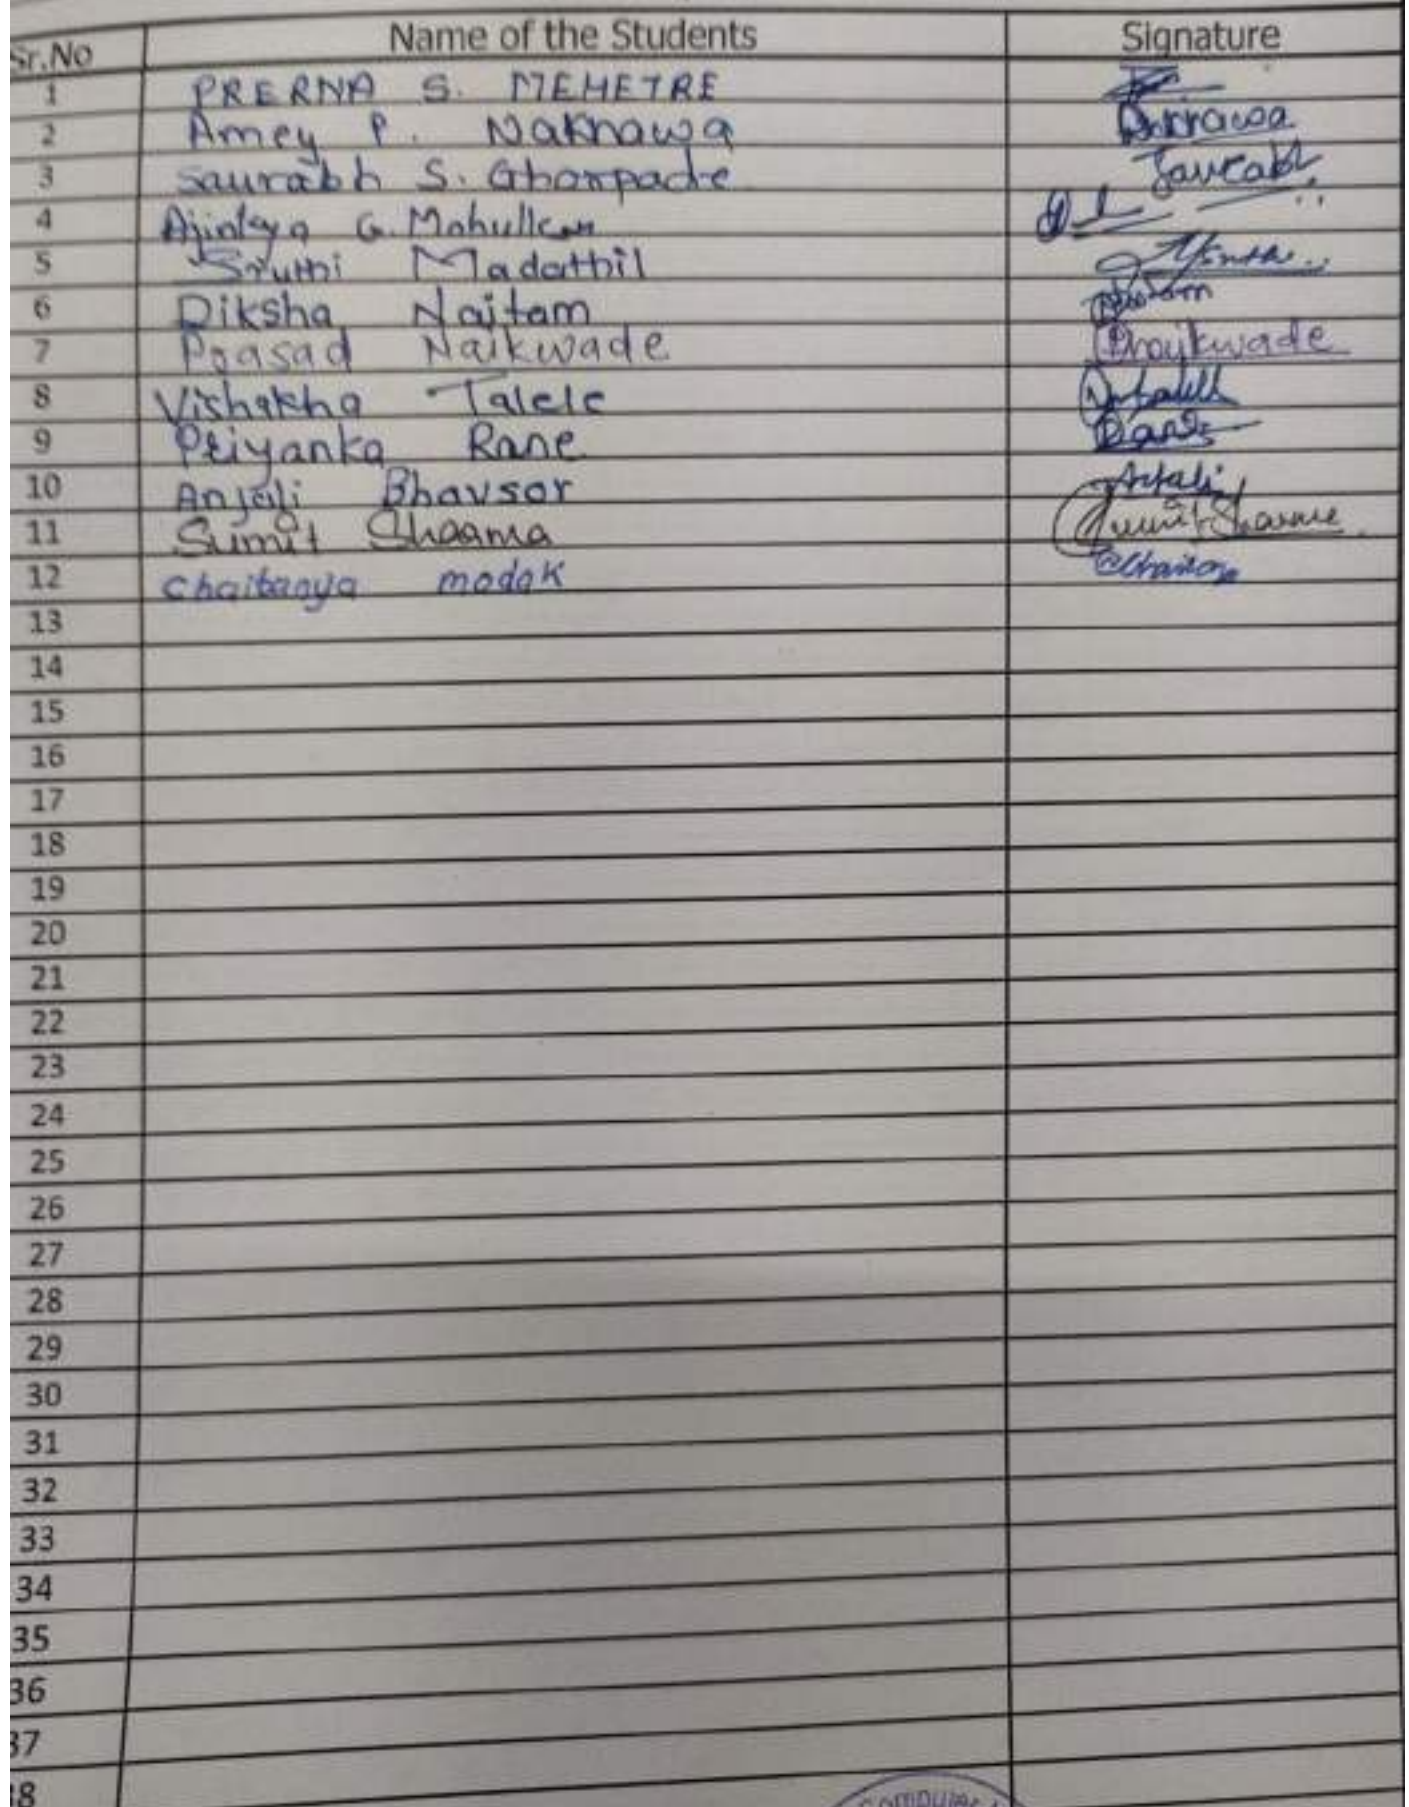 Sr.No Name of the Students Signature
1 PRERNA S. MEHETRE
2 Amey P. Naknawa
3 Saurabh S. Ghorpade Saurabh
4 Ajinkya G.
5 Sruthi Madathil
6 Diksha Naitam
7 Prasad Naikwade
8 Vishakha Talele
9 Priyanka Rane
10 Anjali Bhavsar Anjali
11 Sumit Sharma Sumit Sharma
12 Chaitanya modak
13
14
15
16
17
18
19
20
21
22
23
24
25
26
27
28
29
30
31
32
33
34
35
36
37
38
Computer